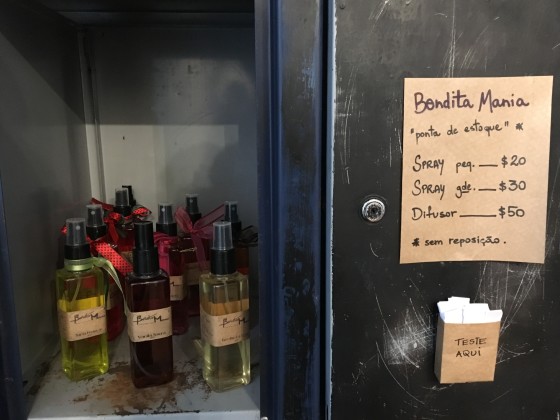 Bendita Mania
"ponta de estoque" *
SPRAY peq. — $20
SPRAY gde. — $30
Difusor — $50
* sem reposição.
TESTE
AQUI
Bendita Mania
Bendita Mania
Bendita Mania